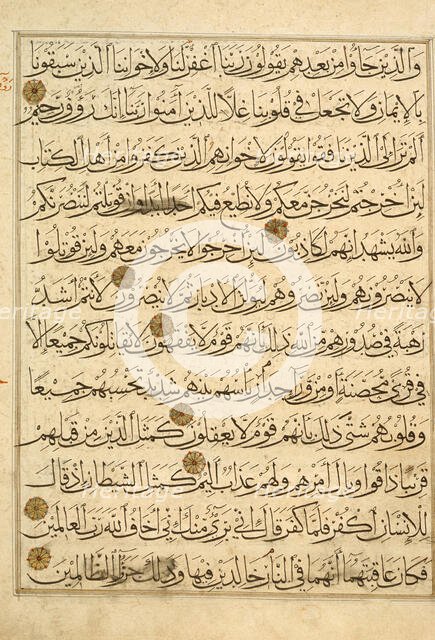 والذين جاؤا من بعدهم يقولون ربنا اغفر لنا ولاخواننا الذين سبقونا
بالايمان ولا تجعل في قلوبنا غلا للذين آمنوا ربنا انك رؤوف رحيم
الم تر الى الذين نافقوا يقولون لاخوانهم الذين كفروا من اهل الكتاب
لئن اخرجتم لنخرجن معكم ولا نطيع فيكم احدا ابدا وان قوتلتم لننصرنكم
والله يشهد انهم لكاذبون لئن اخرجوا لا يخرجون معهم ولئن قوتلوا
لا ينصرونهم ولئن نصروهم ليولن الادبار ثم لا ينصرون لانتم اشد
رهبة في صدورهم من الله ذلك بانهم قوم لا يفقهون لا يقاتلونكم جميعا الا
في قرى محصنة او من وراء جدر باسهم بينهم شديد تحسبهم جميعا
وقلوبهم شتى ذلك بانهم قوم لا يعقلون كمثل الذين من قبلهم
قريبا ذاقوا وبال امرهم ولهم عذاب اليم كمثل الشيطان اذ قال
للانسان اكفر فلما كفر قال اني بريء منك اني اخاف الله رب العالمين
فكان عاقبتهما انهما في النار خالدين فيها وذلك جزاء الظالمين
heritage